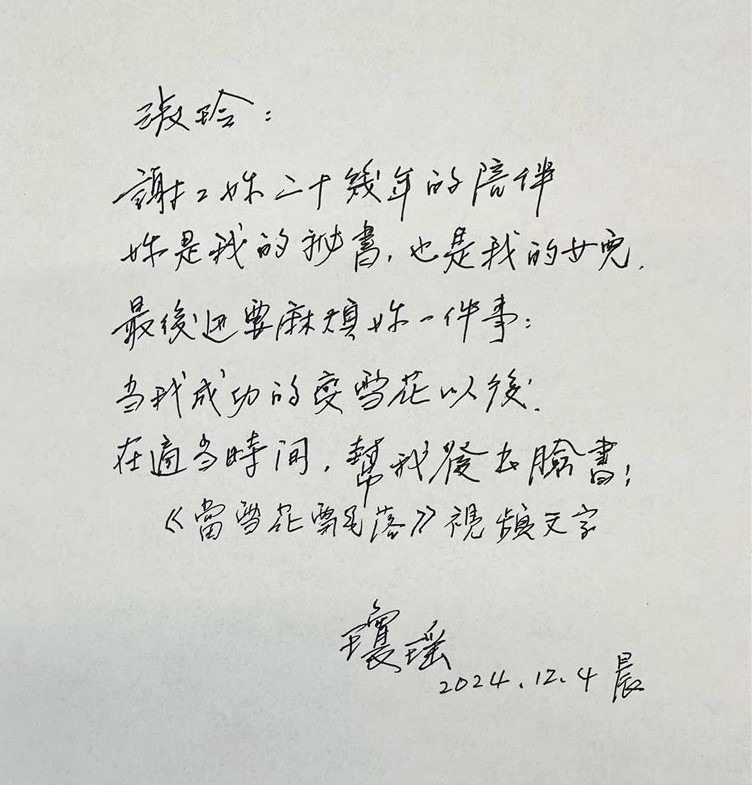 淑玲:
謝謝妳二十幾年的陪伴
妳是我的秘書,也是我的女兒.
最後还要麻煩妳一件事:
当我成功的变雪花以後.
在適当時间,幫我發出臉書:
《當雪花飄落》視頻文字
瓊瑤
2024.12.4 晨